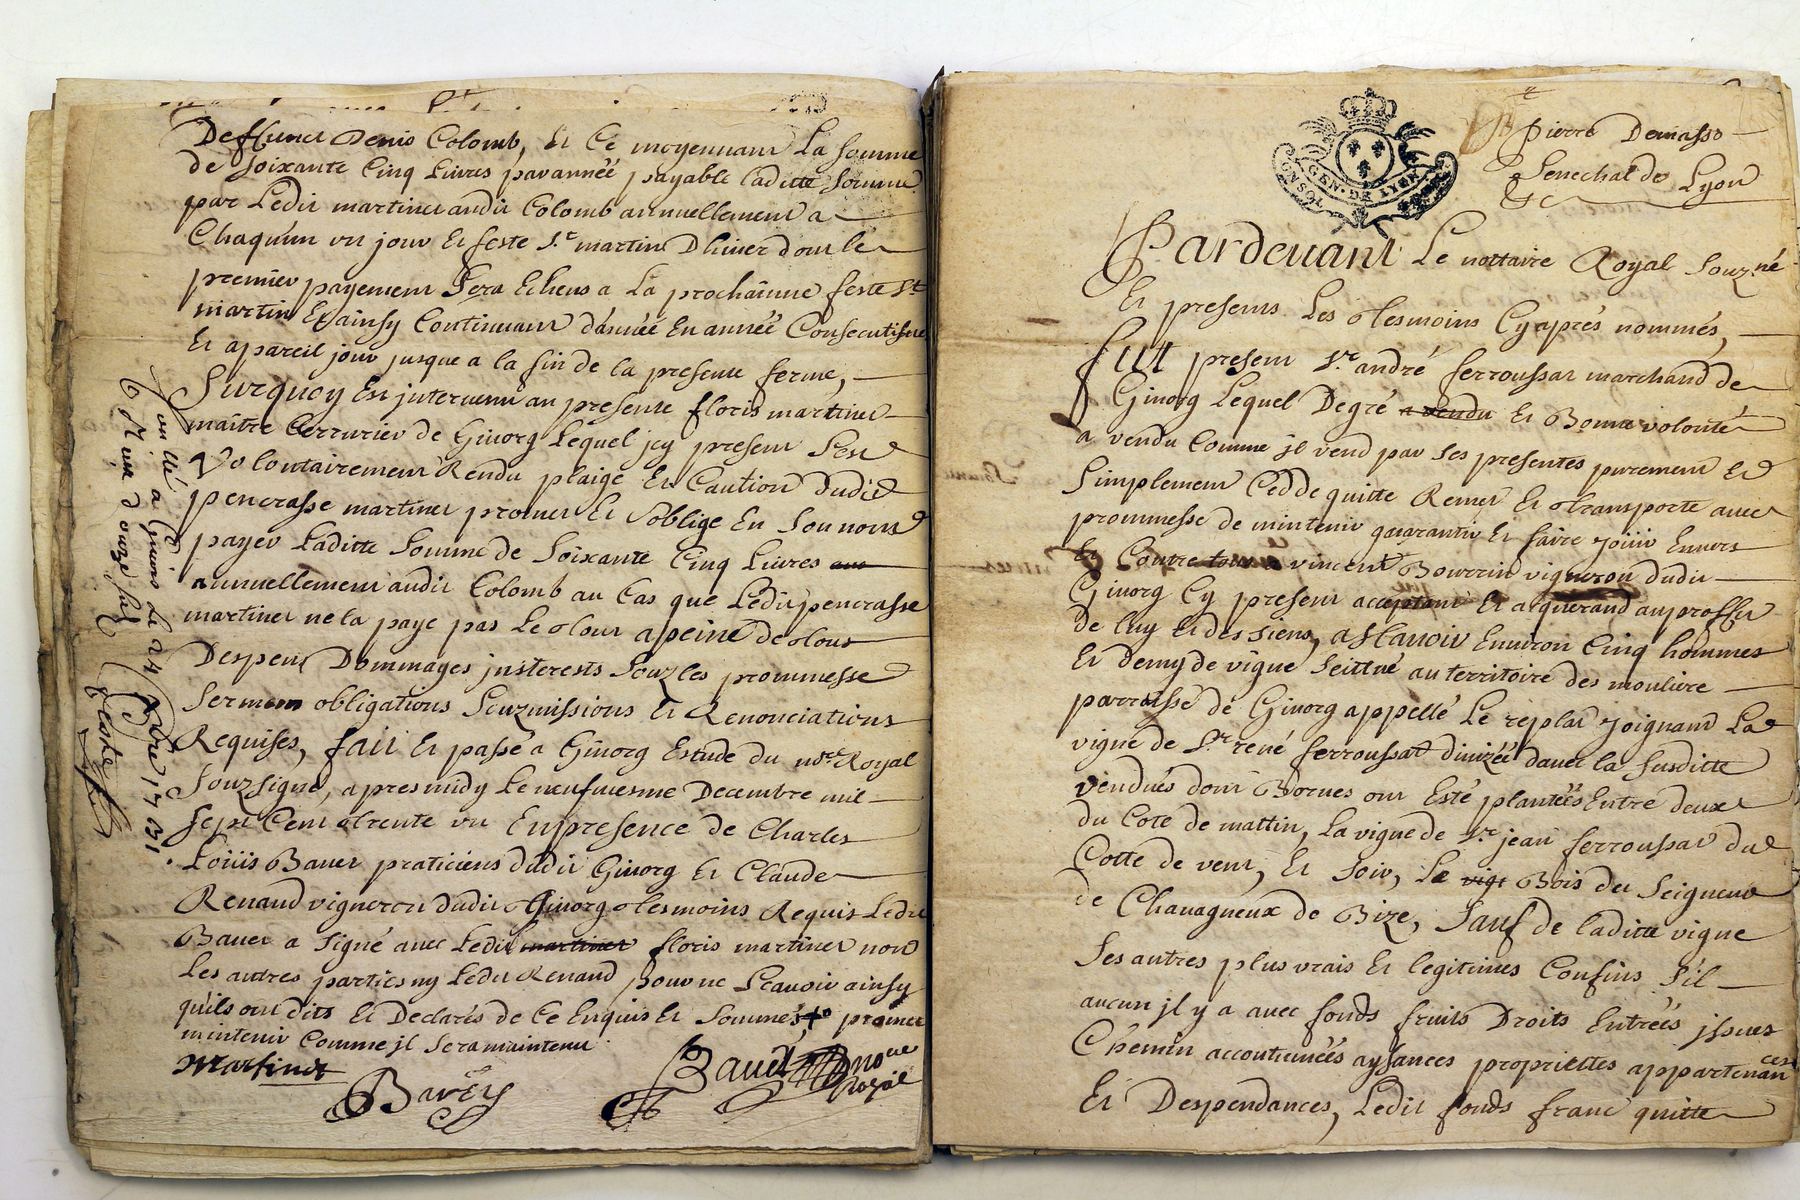 Deffunct Denis Colomb, Et Ce moyennant La somme
de soixante Cinq Livres par année payable laditte somme
par Ledit martinet audit Colomb annuellement a
Chaqu'un un jour Et feste St martin Dhiver dont le
premier payement Sera Echeus a La prochainne feste St
martin Et ainsy Continuant d'année En année Consecutifve
Et apareil jour jusque a la fin de la presente ferme,
Surquoy Est intervenu au presente floris martinet
maître Cerrurier de Givorg Lequel jcy present S'est
Volontairement Rendu plaige Et Caution dudit
pencrasse martinet promet Et soblige En Son nom
payer Laditte Somme de Soixante Cinq Livres
annuellement audit Colomb au Cas que Ledit pencrasse
martinet ne la paye pas Le tout a peine de tous
Despens Dommages jnsterests Souz les prommesse
Serment obligations Souzmissions Et Renonciations
Requises, fait Et passé a Givorg Estude du nore Royal
Souzsigné, apres midy Le neufviesme Decembre mil
sept Cent trente un En presence de Charles
Loüis Baver praticiens dudit Givorg Et Claude
Renaud vigneron dudit Givorg tesmoins Requis Ledit
Baver a Signé avec Ledit martinet floris martinet non
Les autres parties ny Ledit Renaud pour ne Scavoir ainsy
qu'ils ont dits Et Declarés de Ce Enquis Et Sommés + promet
mintenir Comme jl Sera maintenu
Martinet
Barëy
Bauet
nore
Royal
Con llé a Givors Le 24 Xbre 1731
R. six douze sols
Pierre Demasso
Senechal de Lyon
&c
GEN. DE LYON
Pardevant Le nottaire Royal Souzné
Et presens Les tesmoins Cyaprés nommés,
fut present Sr. andré ferroussat marchand de
Givorg Lequel De gré a vendu Et Bonne volonté
a vendu Comme jl vend par Ses presentes purement Et
Simplement Cedde quitte Remet Et transporte avec
prommesse de mintenir guarantir Et faire joüir Envers
Et Contre tous a vincent Bourrin vigneron dudit
Givorg Cy present acceptant Et aquerand au proffit
de luy Et des Siens, a Scavoir Environ Cinq hommes
Et demy de vigne Seittué au territoire des mouliere
parroisse de Givorg appellé Le replat joignand La
vigne de Sr. rené ferroussat divizéé davec la susditte
vendués dont Bornes ont Esté plantéés Entre deux
du Coté de mattin, La vigne de Sr jean ferroussat du
Cotte de vent, Et Soir, Le vige Bois du Seigneur
de Chavagneux de Bize, Sauf de laditte vigne
Ses autres plus vrais Et legitimes Confins S'il
aucun jl y a avec fonds fruits Droits Entréés jssues
Chemin accoutuméés aysances propriettes appartenances
Et Despendances, Ledit fonds franc quitte